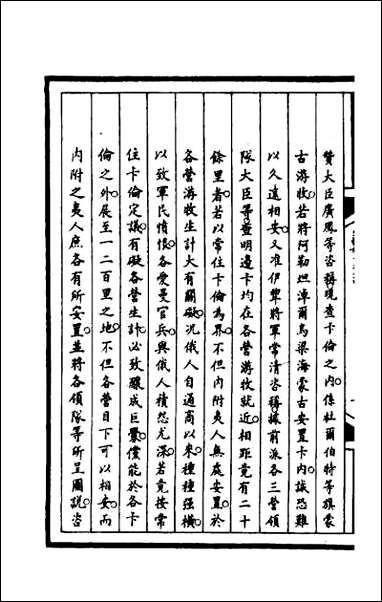 贊大臣廣鳳等咨稱現查卡倫之內係杜爾伯特等旗蒙
古游牧若將阿勒坦淖爾烏梁海蒙古安置卡內誠恐難
以久遠相安又准伊犂將軍常清咨稱據前派各三營領
隊大臣等查明邊卡均在各營游牧就近相距竟有二十
餘里者若以常住卡倫為界不但內附夷人無處安置於
各營游牧生計大有關礙況俄人自通商以來種種强橫
以致軍民憤恨各愛曼官兵與俄人積怨尤深若竟按常
住卡倫定議有礙各營生計必致釀成巨釁儻能於各卡
倫之外展至一二百里之地不但各營目下可以相安而
內附之夷人庶各有所安置並將各領隊等所呈圖說咨